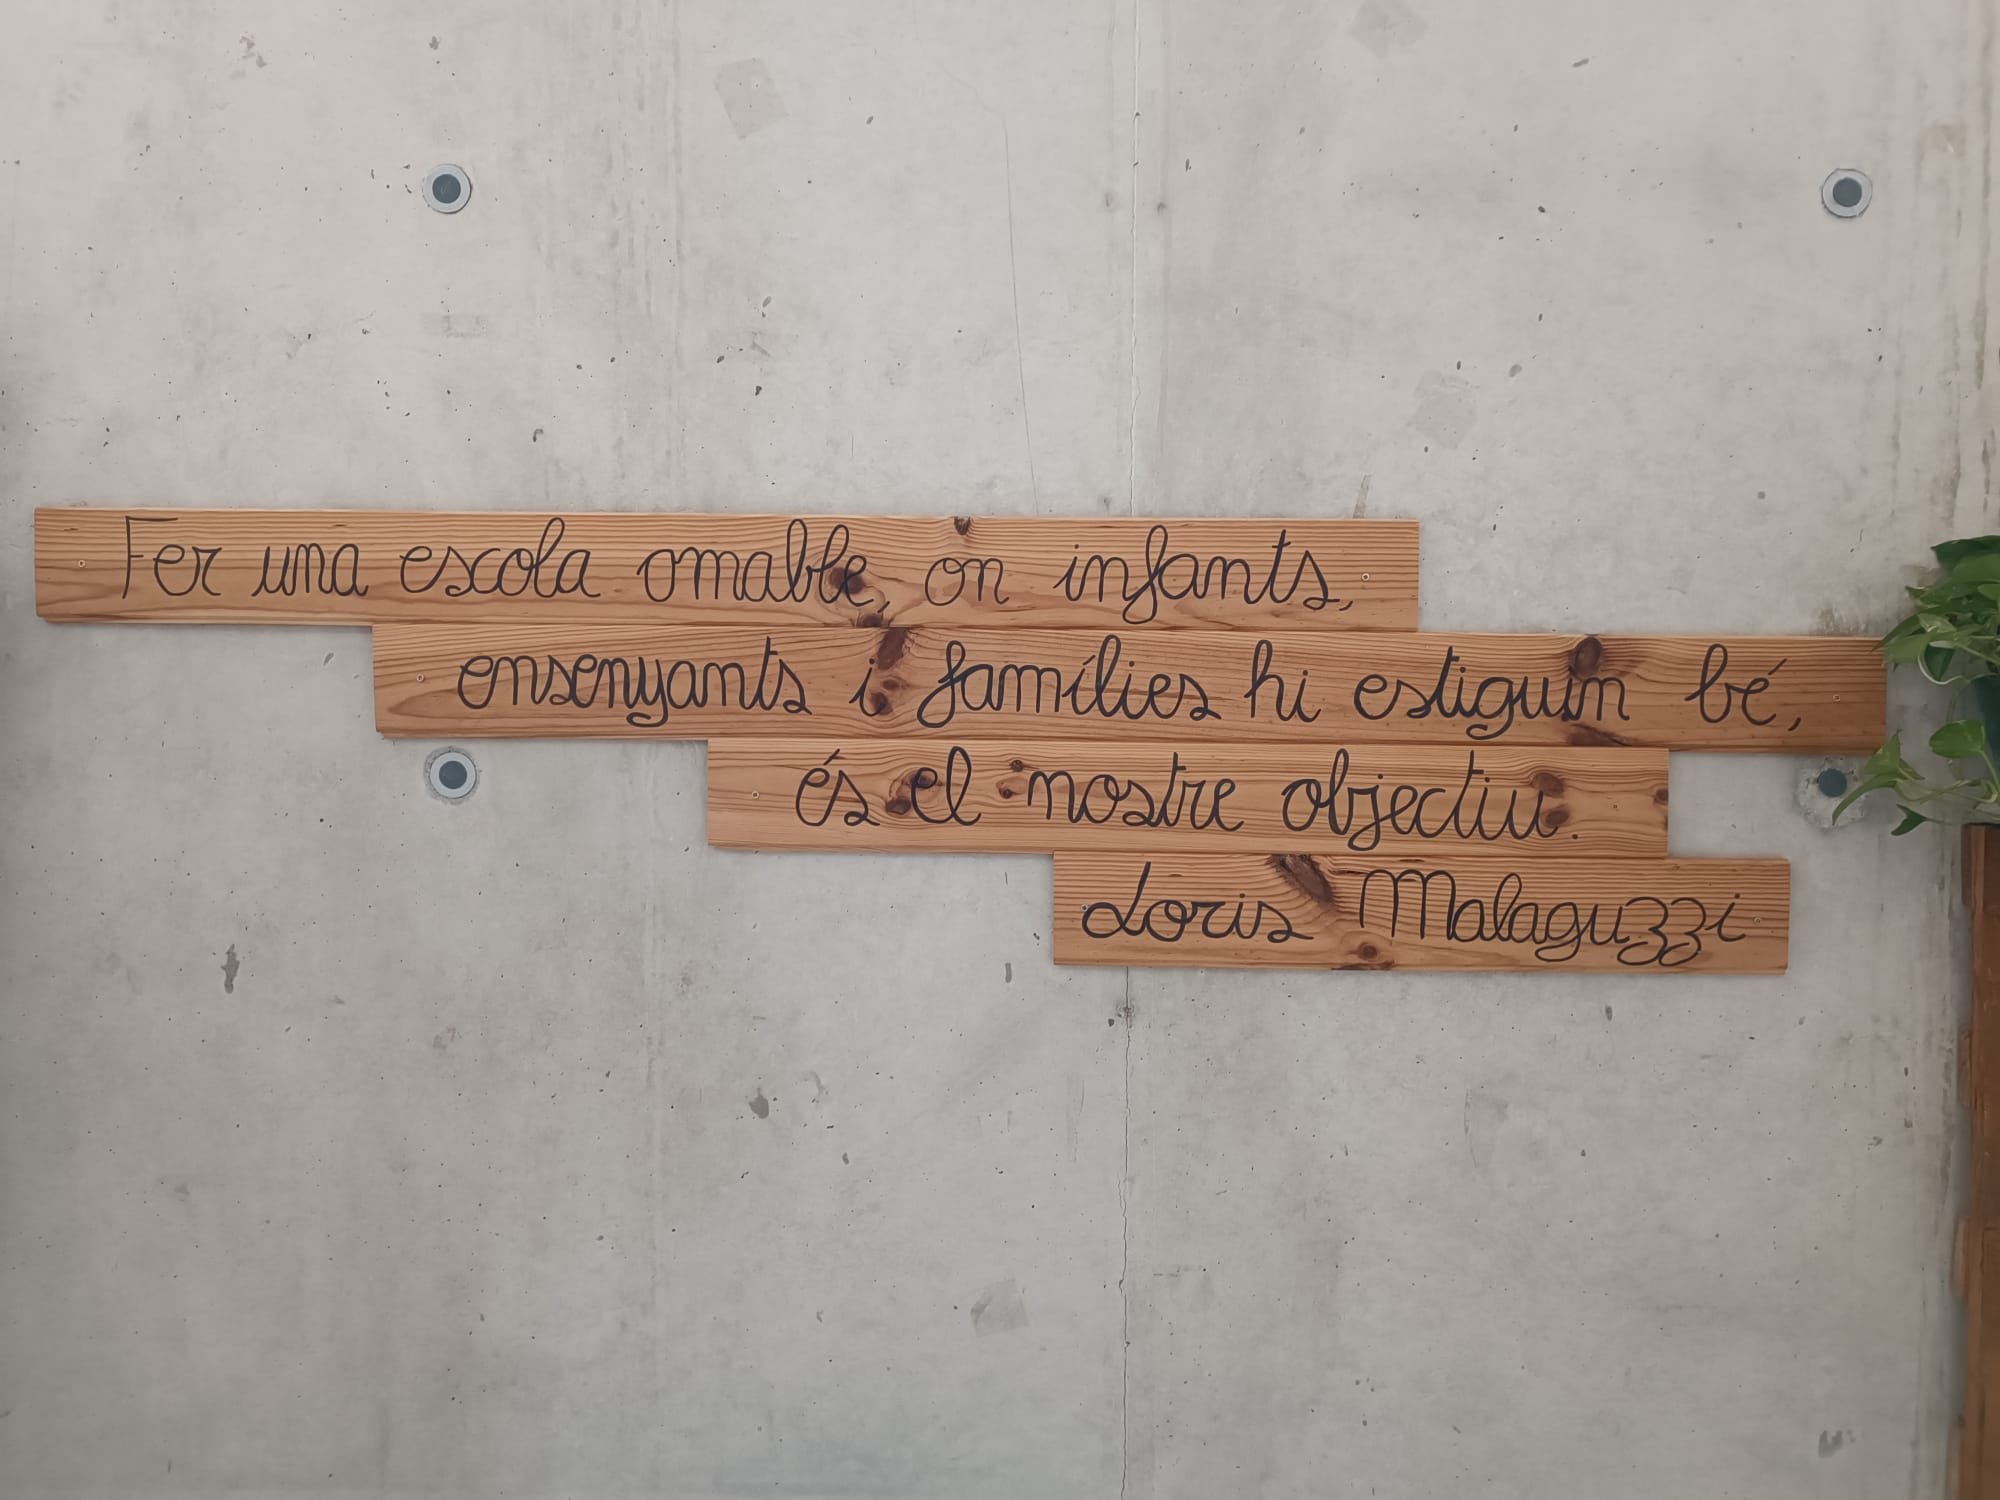 Fer una escola amable, on infants,
ensenyants i famílies hi estiguin bé,
és el nostre objectiu.
Loris Malaguzzi